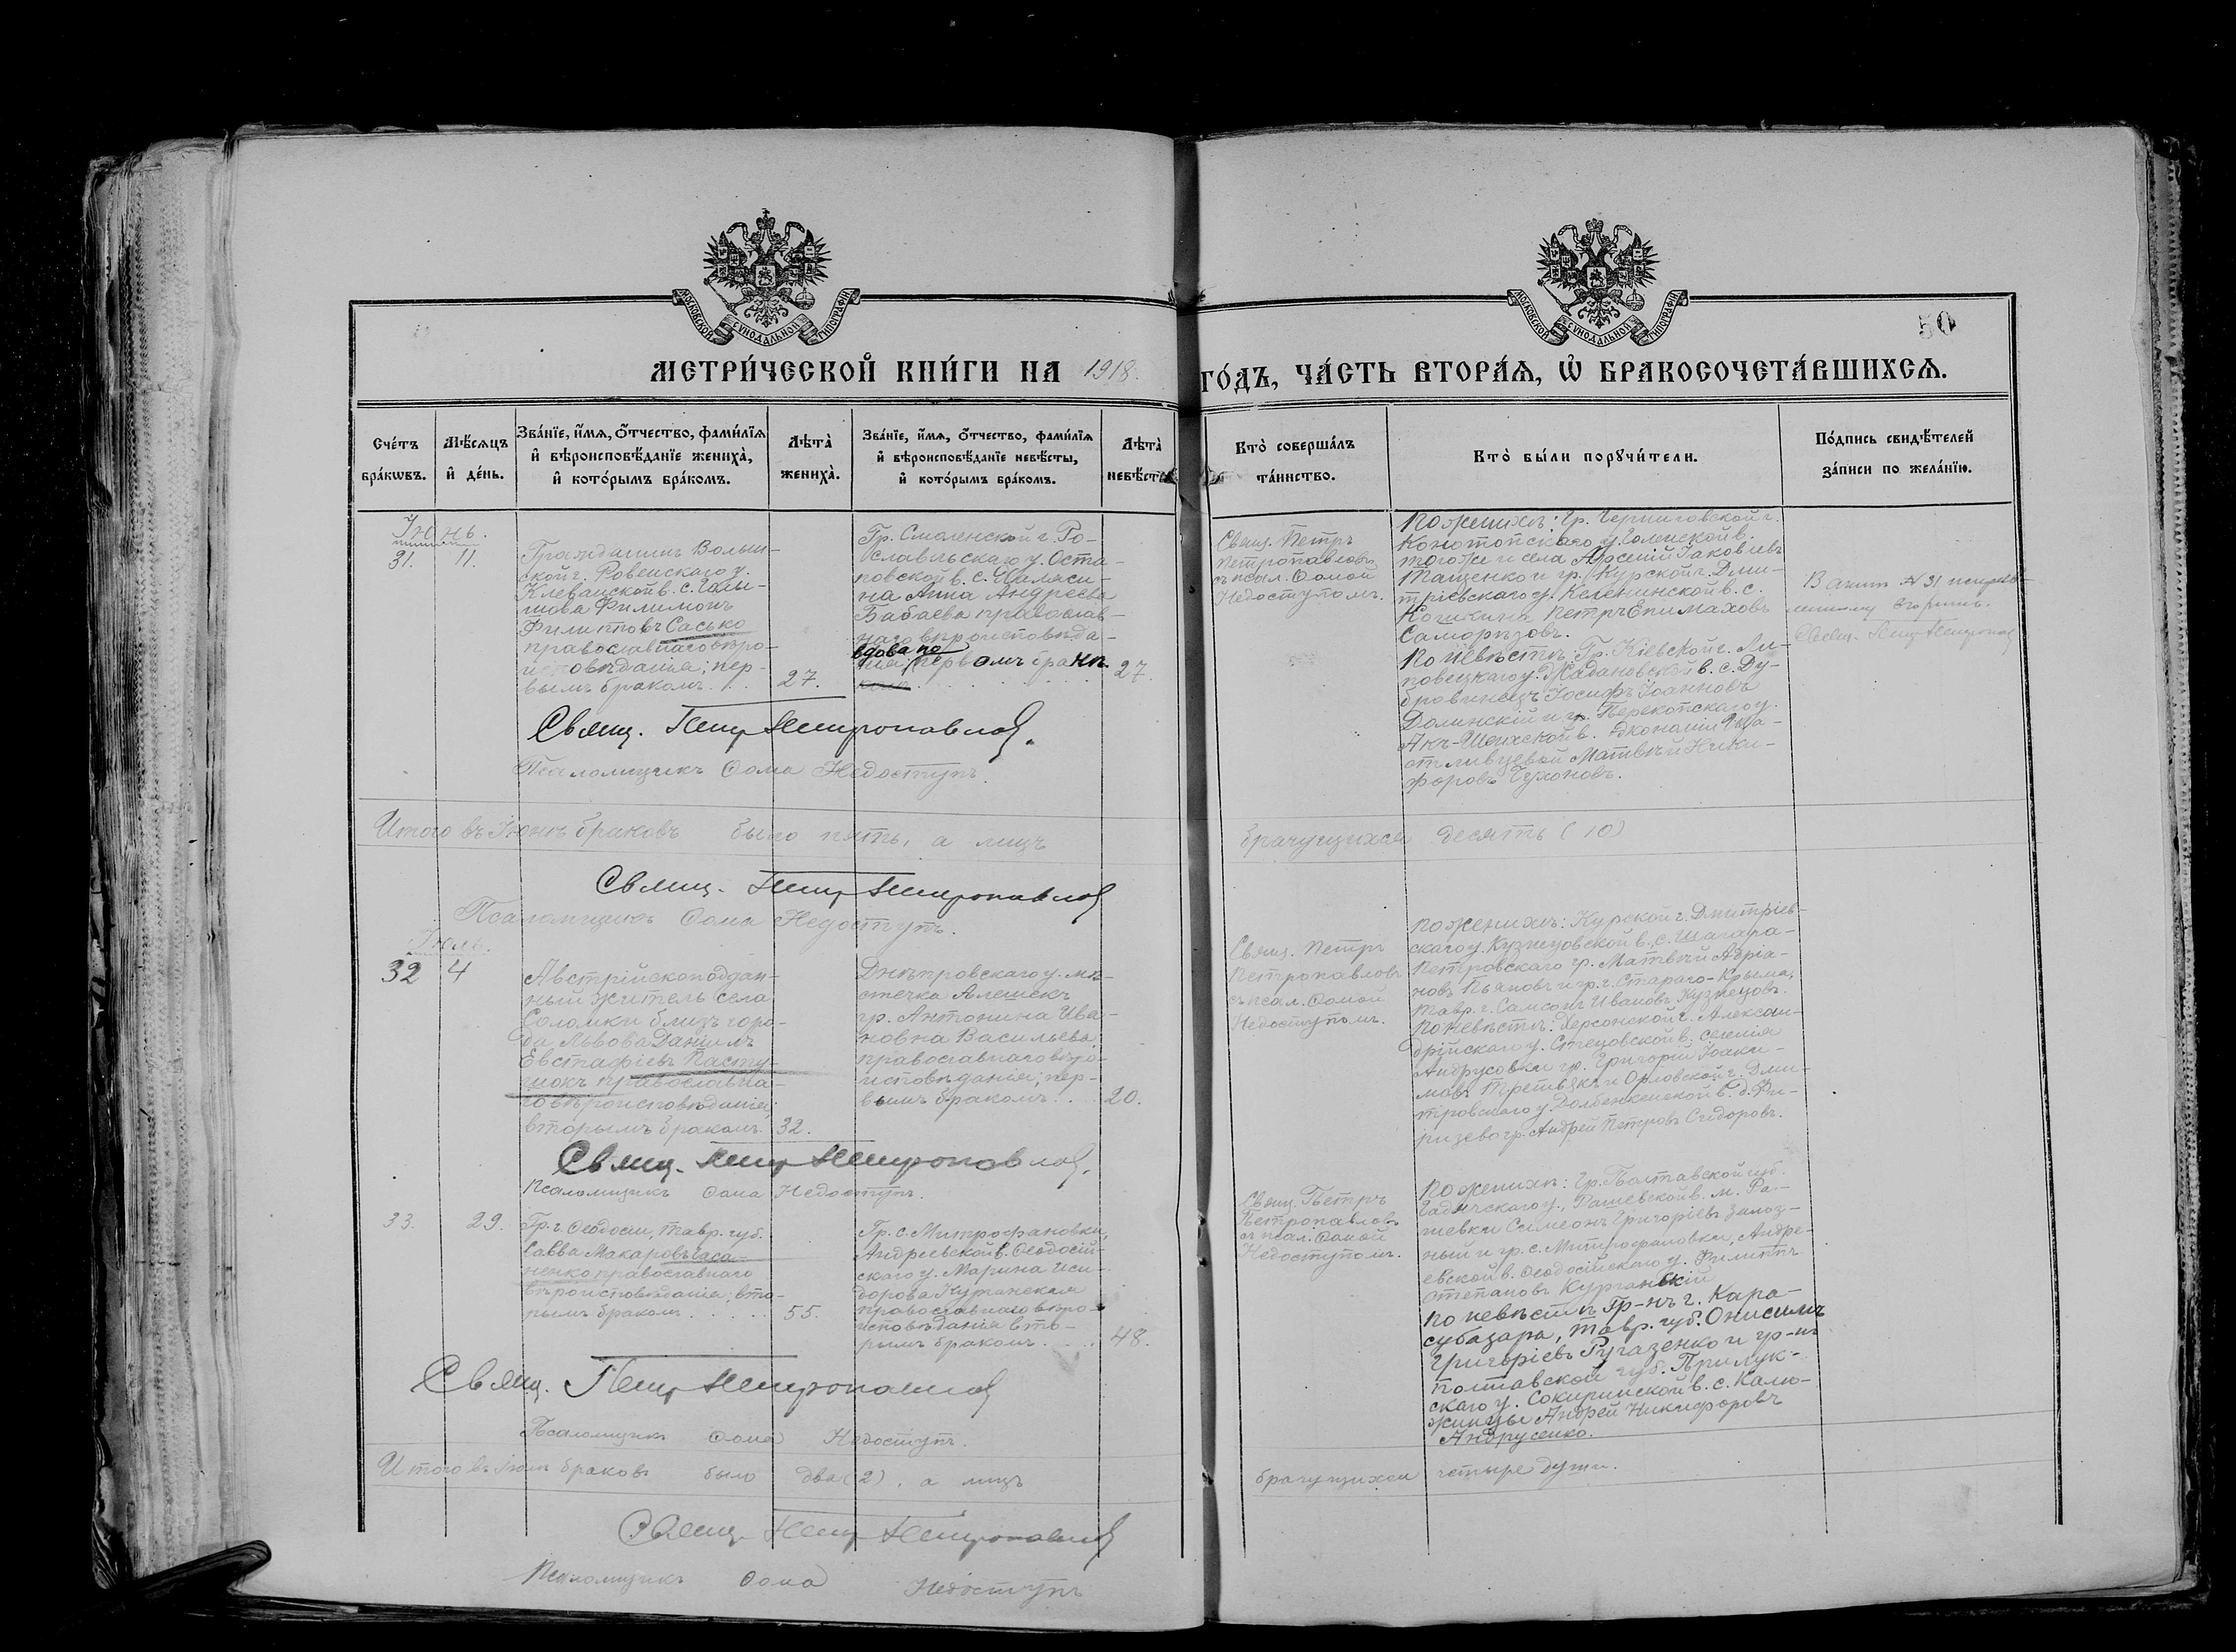 МОСКОВСКОЙ СѴНОДАЛЬНОЙ ТИПОГРАФІИ
МОСКОВСКОЙ СѴНОДАЛЬНОЙ ТИПОГРАФІИ
50
МЕТРИ́ЧЕСКОЙ КНИ́ГИ НА 1918. ГО́ДЪ, ЧА́СТЬ ВТОРА́Ѧ, Ѡ҆ БРАКОСОЧЕТА́ВШИХСѦ.
Сче́тъ бра́кѡвъ.
Мѣ́сѧцъ и҆ де́нь.
Зва́нїе, и҆́мѧ, ѻ҆́тчество, фами́лїѧ
и҆ вѣроисповѣ́данїе жениха̀,
и҆ кото́рымъ бра́комъ.
Лѣта̀ жениха̀.
Зва́нїе, и҆́мѧ, ѻ҆́тчество, фами́лїѧ
и҆ вѣроисповѣ́данїе невѣ́сты,
и҆ кото́рымъ бра́комъ.
Лѣта̀ невѣ́сты
Кто̀ соверша́лъ
та́инство.
Кто̀ бы́ли порꙋчи́тели.
По́дпись свидѣ́телей
за́писи по жела́нїю.
Іюнь.
31. 11.
Гражданинъ Волын-
ской г. Ровенскаго у.
Клеванской в. с.
Филимонъ
Филипповъ Сасько
православнаго вѣро-
исповѣданія; пер-
вымъ бракомъ . . .
27.
Гр. Смоленской г. Ро-
славльскаго у. Оста-
повской в. с.
на Анна Андреева
Бабаева православ-
наго вѣроисповѣда-
вдова по
нія; первомъ бракѣ
27.
Свящ. Петръ
Петропавловъ
съ псал. Ѳомой
Недоступомъ.
По женихѣ: Гр. Черниговской г.
Конотопскаго у. Голенской в.
того же и села Арсеній Іаковлевъ
Тащенко и гр. Курской г. Дми-
тріевскаго у. Келенинской в. с.
Кошкина Петръ Епимаховъ
Саморядовъ.
По невѣстѣ: Гр. Кіевской г. Ли-
повецкаго у. Жадановской в. с. Ду-
бровинецъ Іосифъ Іоанновъ
Долинскій и гр. Перекопскаго у.
Акъ-Шеихской в.
Матвѣй Ники-
форовъ Чехоновъ.
В актѣ № 31
вѣрить.
Свящ. Петръ Петропавловъ
Свящ. Петръ Петропавловъ.
Псаломщикъ Ѳома Недоступъ.
Итого въ Іюнѣ браковъ было пять, а лицъ брачущихся десять (10)
Свящ. Петръ Петропавловъ
Псаломщикъ Ѳома Недоступъ.
Іюль.
32 4
Австрійскоподдан-
ный житель села
Соломки близъ горо-
да Львова Даніилъ
Евстафіевъ Пасту-
шокъ православна-
го вѣроисповѣданія;
вторымъ бракомъ.
32.
Днѣпровскаго у. мѣ-
стечка Алешекъ
гр. Антонина Ива-
новна Васильева,
православнаго вѣро-
исповѣданія; пер-
вымъ бракомъ . .
20.
Свящ. Петръ
Петропавловъ
съ псал. Ѳомой
Недоступомъ.
По женихѣ: Курской г. Дмитріев-
скаго у. Кузнецовской в., с. Шагара-
Петровскаго гр. Матвѣй Адріа-
новъ Пьяновъ и гр. г. Стараго-Крыма,
Тавр. г. Самсонъ Ивановъ Кузнецовъ.
По невѣстѣ: Херсонской г. Алексан-
дрійскаго у. Стецовской в. селенія
Андрусовки гр. Григорій Іоаки-
мовъ Третьякъ и Орловской г. Дми-
тровскаго у. Долбенкинской в.
гр. Андрей Петровъ Сидоровъ.
Свящ. Петръ Петропавловъ.
Псаломщикъ Ѳома Недоступъ.
33. 29.
Гр. г. Ѳеодосіи, Тавр. губ.
Савва Макаровъ Саса-
ненко православнаго
вѣроисповѣданія; вто-
рымъ бракомъ . . . . .
55.
Гр. с. Митрофановки,
Андреевской в. Ѳеодосій-
скаго у. Марина Иси-
дорова Курганская
православнаго вѣро-
исповѣданія вто-
рымъ бракомъ . . . .
48.
Свящ. Петръ
Петропавловъ
съ псал. Ѳомой
Недоступомъ.
По женихѣ: Гр. Полтавской губ.
Гадячскаго у., Рашевской в. м. Ра-
шевки Симеонъ Григоріевъ Залоз-
ный и гр. с. Митрофановки, Андре-
евской в. Ѳеодосійскаго у. Филиппъ
Степановъ Курганскій
По невѣстѣ гр-нъ г. Кара-
субазара, Тавр. губ. Онисимъ
Григоріевъ Ругазенко и гр-нъ
Полтавской губ. Прилук-
скаго у. Сокиринской в. с. Калю-
жинцы Андрей Никифоровъ
Андрусенко.
Свящ. Петръ Петропавловъ
Псаломщикъ Ѳома Недоступъ.
Итого въ Іюлѣ браковъ было два (2), а лицъ брачущихся четыре души.
Свящ. Петръ Петропавловъ
Псаломщикъ Ѳома Недоступъ